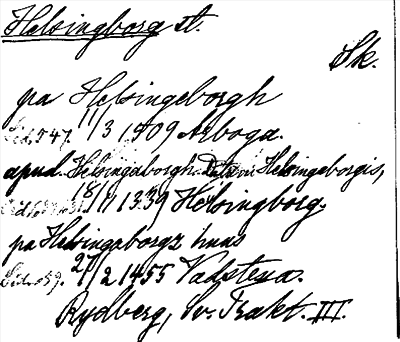 Helsingborg st.
Sk.
pa Helsingeborgh
11/3 1509 Arboga.
apud. Helsingaborgh. Datum Helsingborgis,
18/11 1339 Helsingborg.
pa Helsingaborgx huus
27/2 1455 Vadstena.
Rydberg, Sv. Trakt. III.